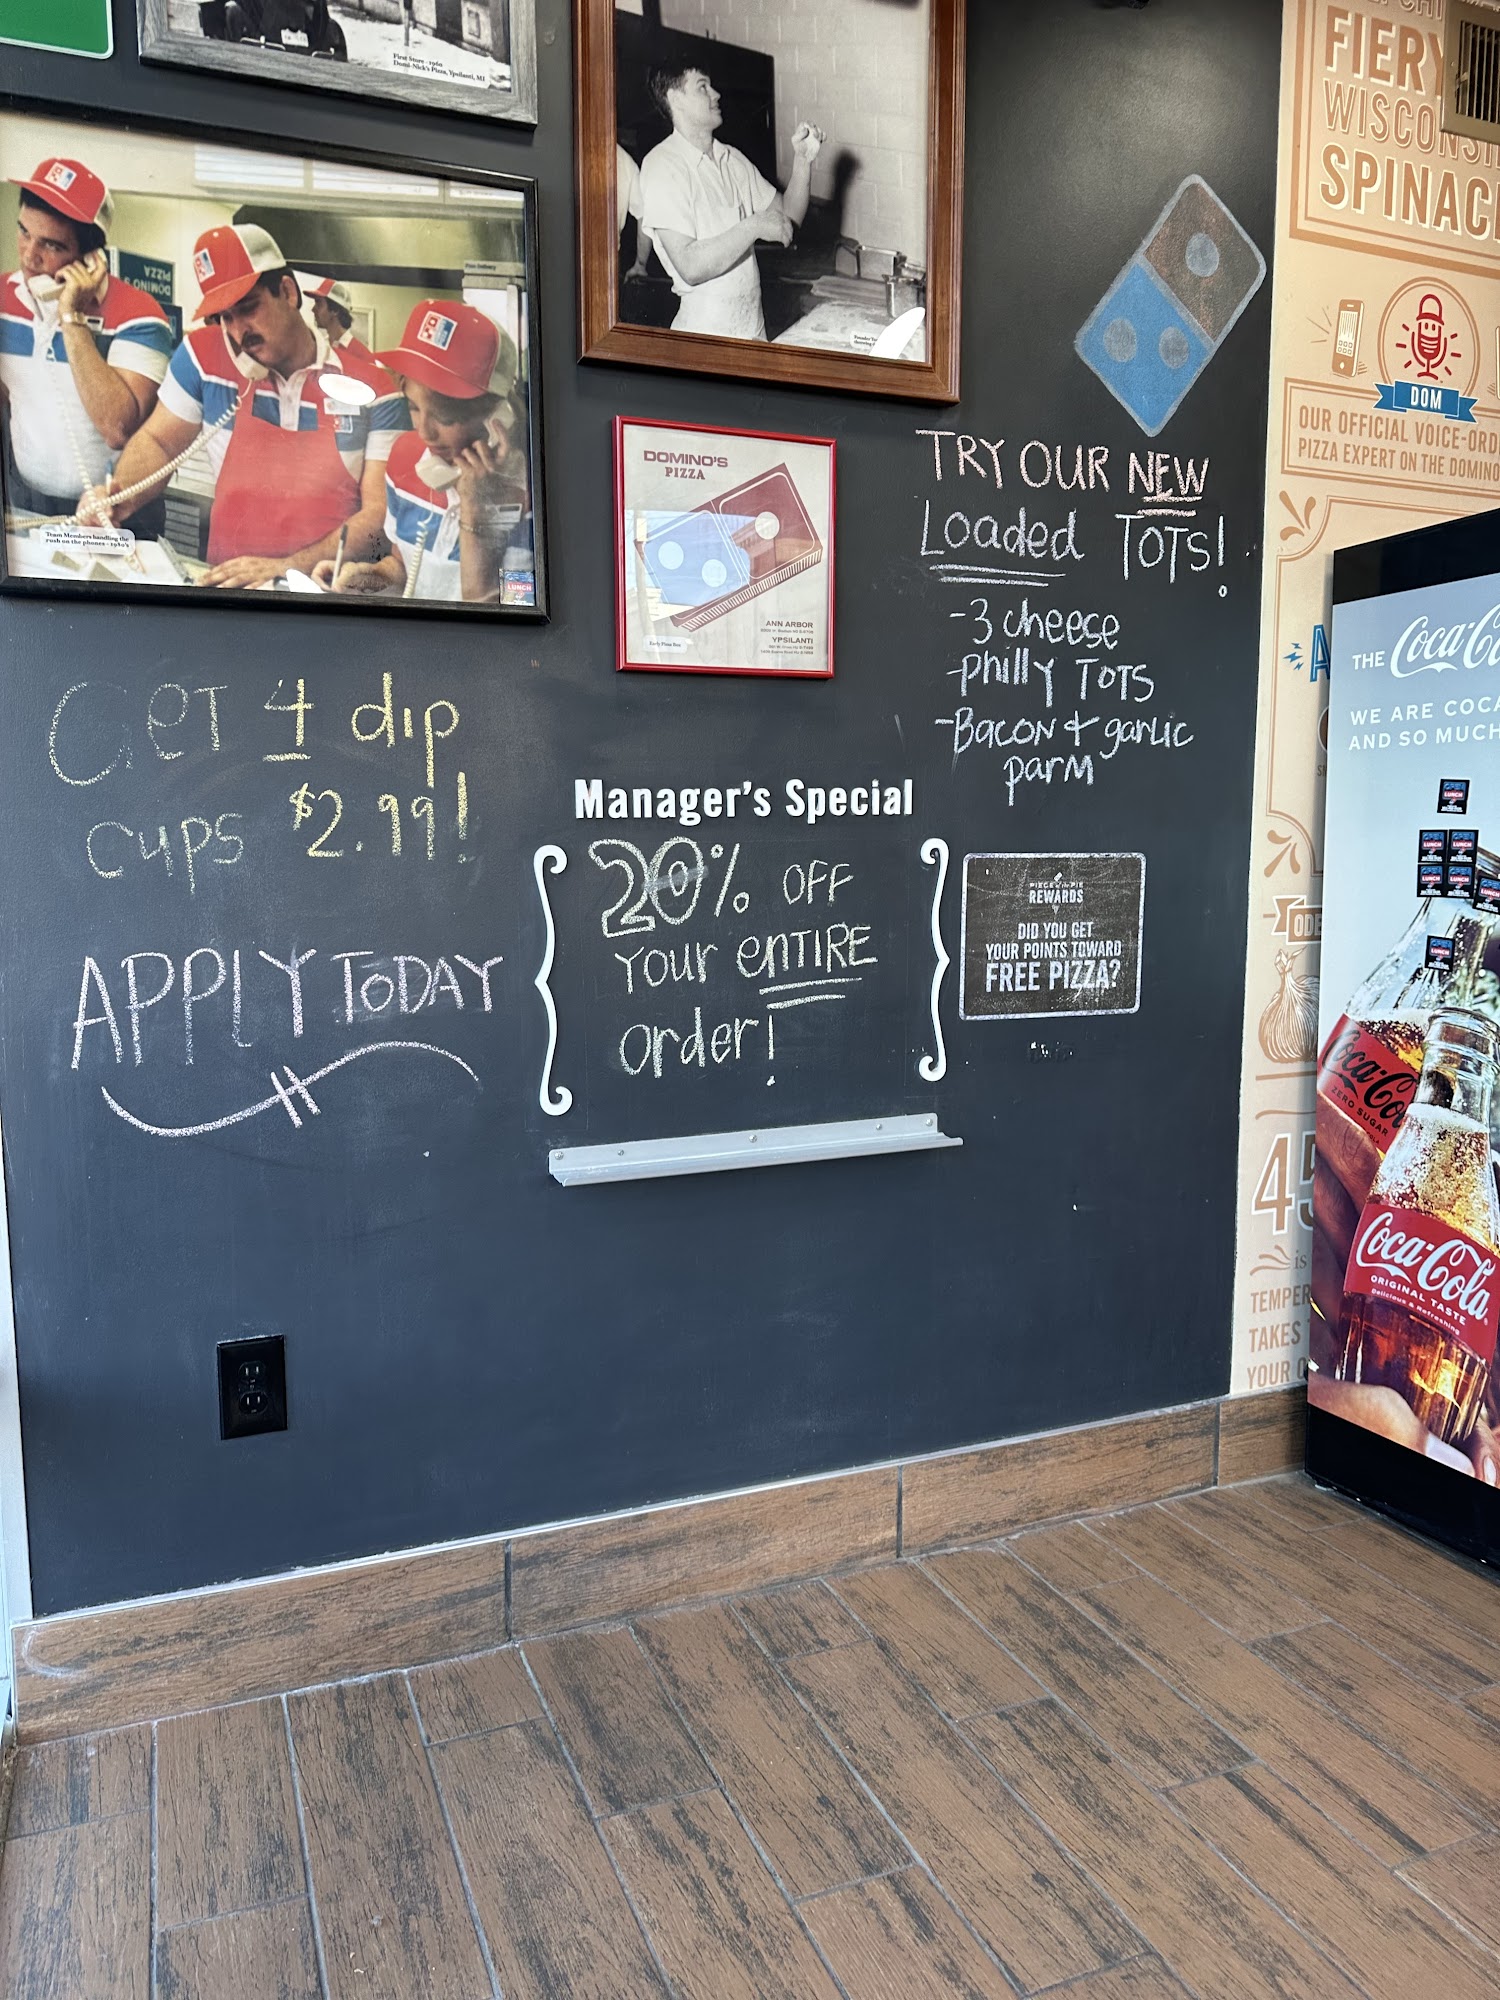 First Store - 1960
Domi-Nick's Pizza, Ypsilanti, MI
DOMINO'S
PIZZA
Team Members handling the
rush on the phones - 1980's
LUNCH
DOMINO'S
PIZZA
ANN ARBOR
YPSILANTI
Early Pizza Box
TRY OUR NEW
Loaded TOTS!
-3 cheese
-Philly TOTS
-Bacon + garlic
parm
GeT 4 dip
cups $2.99!
APPLY TODAY
Manager's Special
20% OFF
Your enTIRE
order!
PIECE OF THE PIE
REWARDS
DID YOU GET
YOUR POINTS TOWARD
FREE PIZZA?
FIERY
WISCONSI
SPINAC
DOM
OUR OFFICIAL VOICE-ORD
PIZZA EXPERT ON THE DOMINO
45
is
TEMPER
TAKES
YOUR
THE Coca-Co
WE ARE COCA
AND SO MUCH
LUNCH
LUNCH
LUNCH
LUNCH
LUNCH
LUNCH
Coca-Co
ZERO SUGAR
Coca-Cola
ORIGINAL TASTE
Delicious & Refreshing